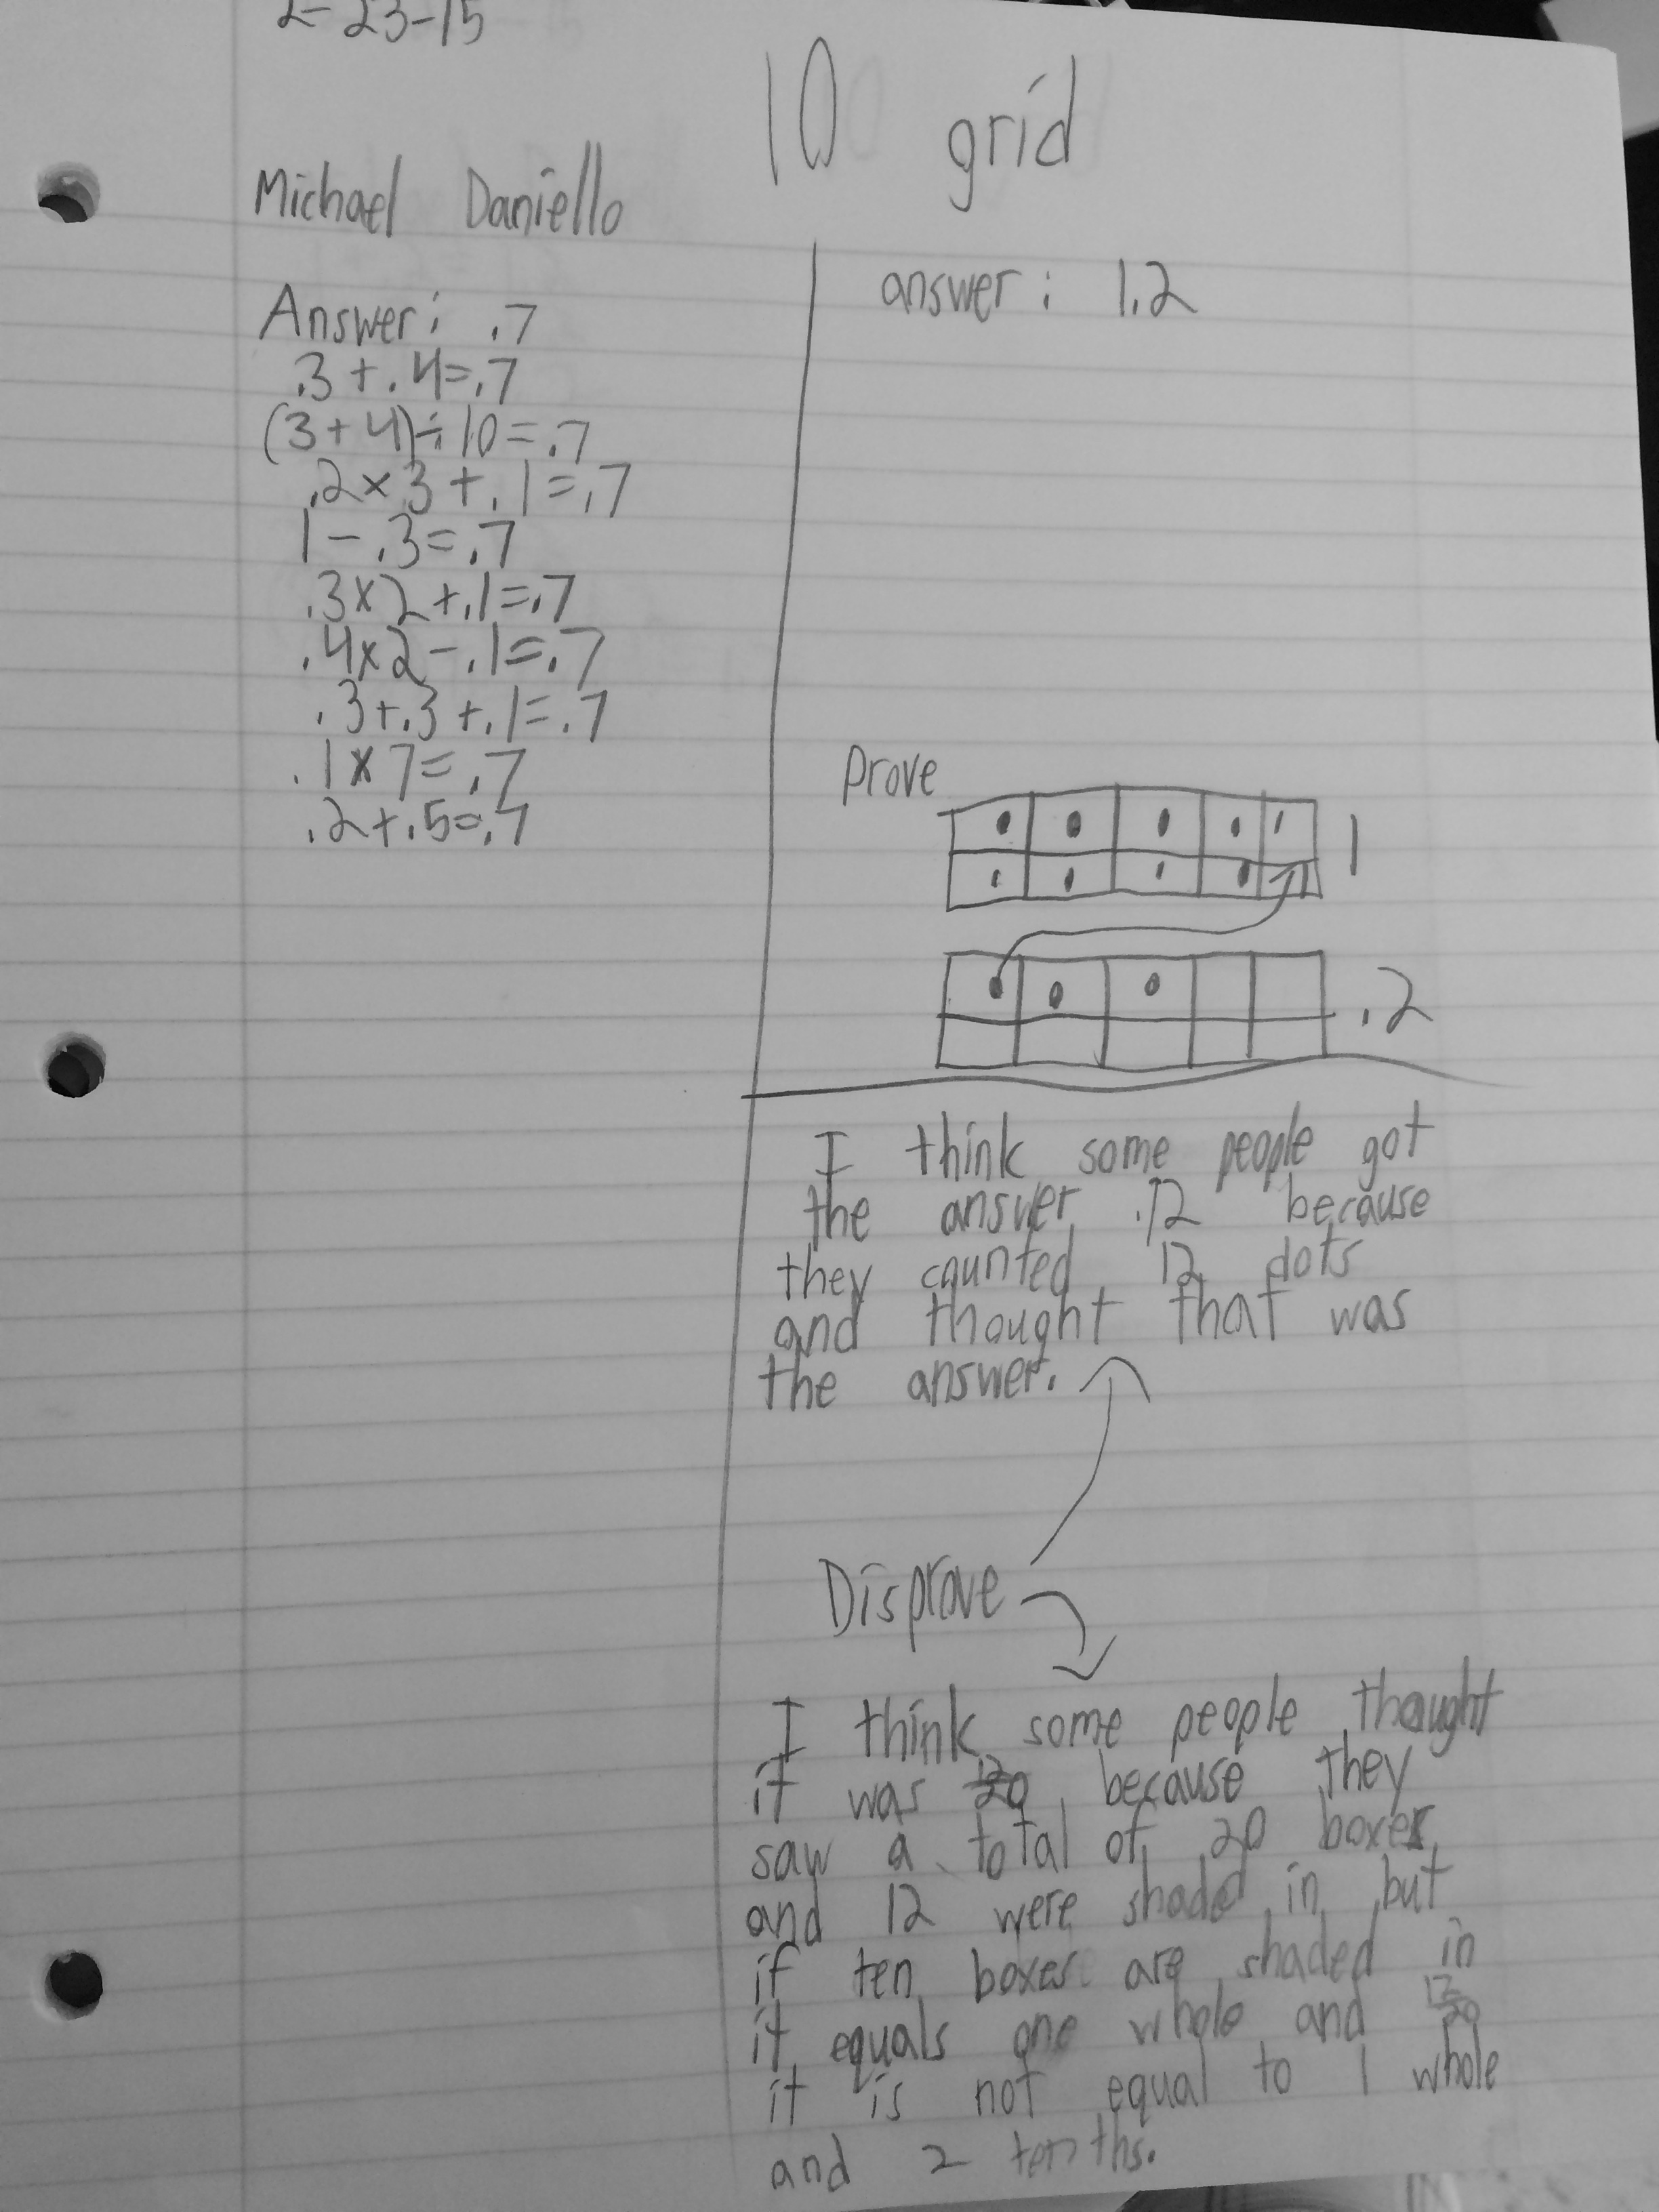 2- 23-15
10 grid
Michael Daniello
Answer: .7
.3+.4=.7
(3+4)÷10=.7
.2×3+.1=.7
1-.3=.7
.3×2+.1=.7
.4×2-.1=.7
.3+.3+.1=.7
.1×7=.7
.2+.5=.7
answer: 1.2
Prove
1
.2
I think some people got
the answer .12 because
they counted 12 dots
and thought that was
the answer.
Disprove
I think some people thought
it was 12/20 because they
saw a total of 20 boxes
and 12 were shaded in but
if ten boxes are shaded in
it equals one whole and 12/20
it is not equal to 1 whole
and 2 tenths.